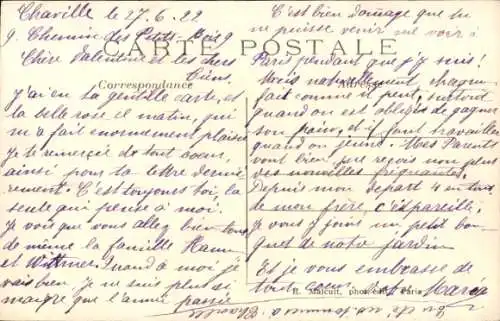 Chaville le 27.6.22
9 Chemin des Petits-Bois 9
CARTE POSTALE
Correspondance
Chère Valentine et les chers
tiens,
J'ai eu ta gentille carte, et
la belle rose ce matin, qui
m'a fait enormement plaisir
Je te remercie de tout coeur,
ainsi pour ta lettre derniè
rement. C'est toujours toi, la
seule qui pense à moi.
Je vois que vous allez bien tous
de même la famille Hamm
et Wittmer. Quand à moi je
vais bien. Je ne suis plus si
maigre que l'année passée
C'est bien domage que tu
ne puisse venir me voir à
Paris pendant que j'y suis!
Mais naturellement chaqun
fait comme il peut, surtout
quand on est obligés de gagner
son pain, et il faut travailler
quand on jeune. Mes Parents
vont bien, je reçois non plus
des nouvelles fréquantes.
Depuis mon depart 4 en tout
de mon frère, c'est pareil!
Je vous y joins un petit bou
quet de notre jardin
Et je vous embrasse de
tout coeur. Votre Maria
R. Malcuit, phot-édit, Paris